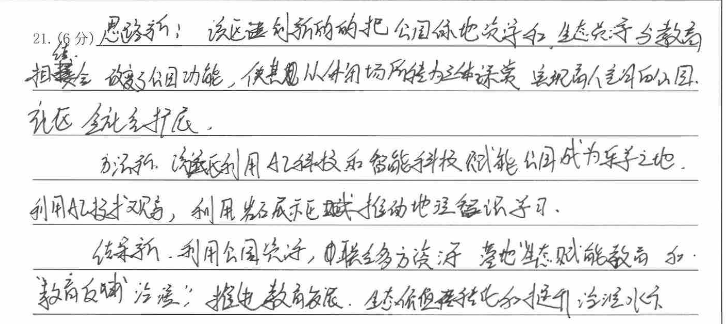 21.(6分) 思路新：该区法创新的的把公园绿地资源和生态资源与教育
相结合 改变了公园功能，使其从休闲场所转为立体课堂 实现向人全面的公园.
社区 全社会扩展.
方法新. 该区利用AI科技和智能科技赋能公园成为乐学之地.
利用AI技术观鸟，利用岩石展示区 推动地理知识学习.
结果新. 利用公园资源，串联全多方资源 营地"生态赋能教育 和
"教育反哺 治理"；推进教育发展. 生态价值转化和提升治理水平